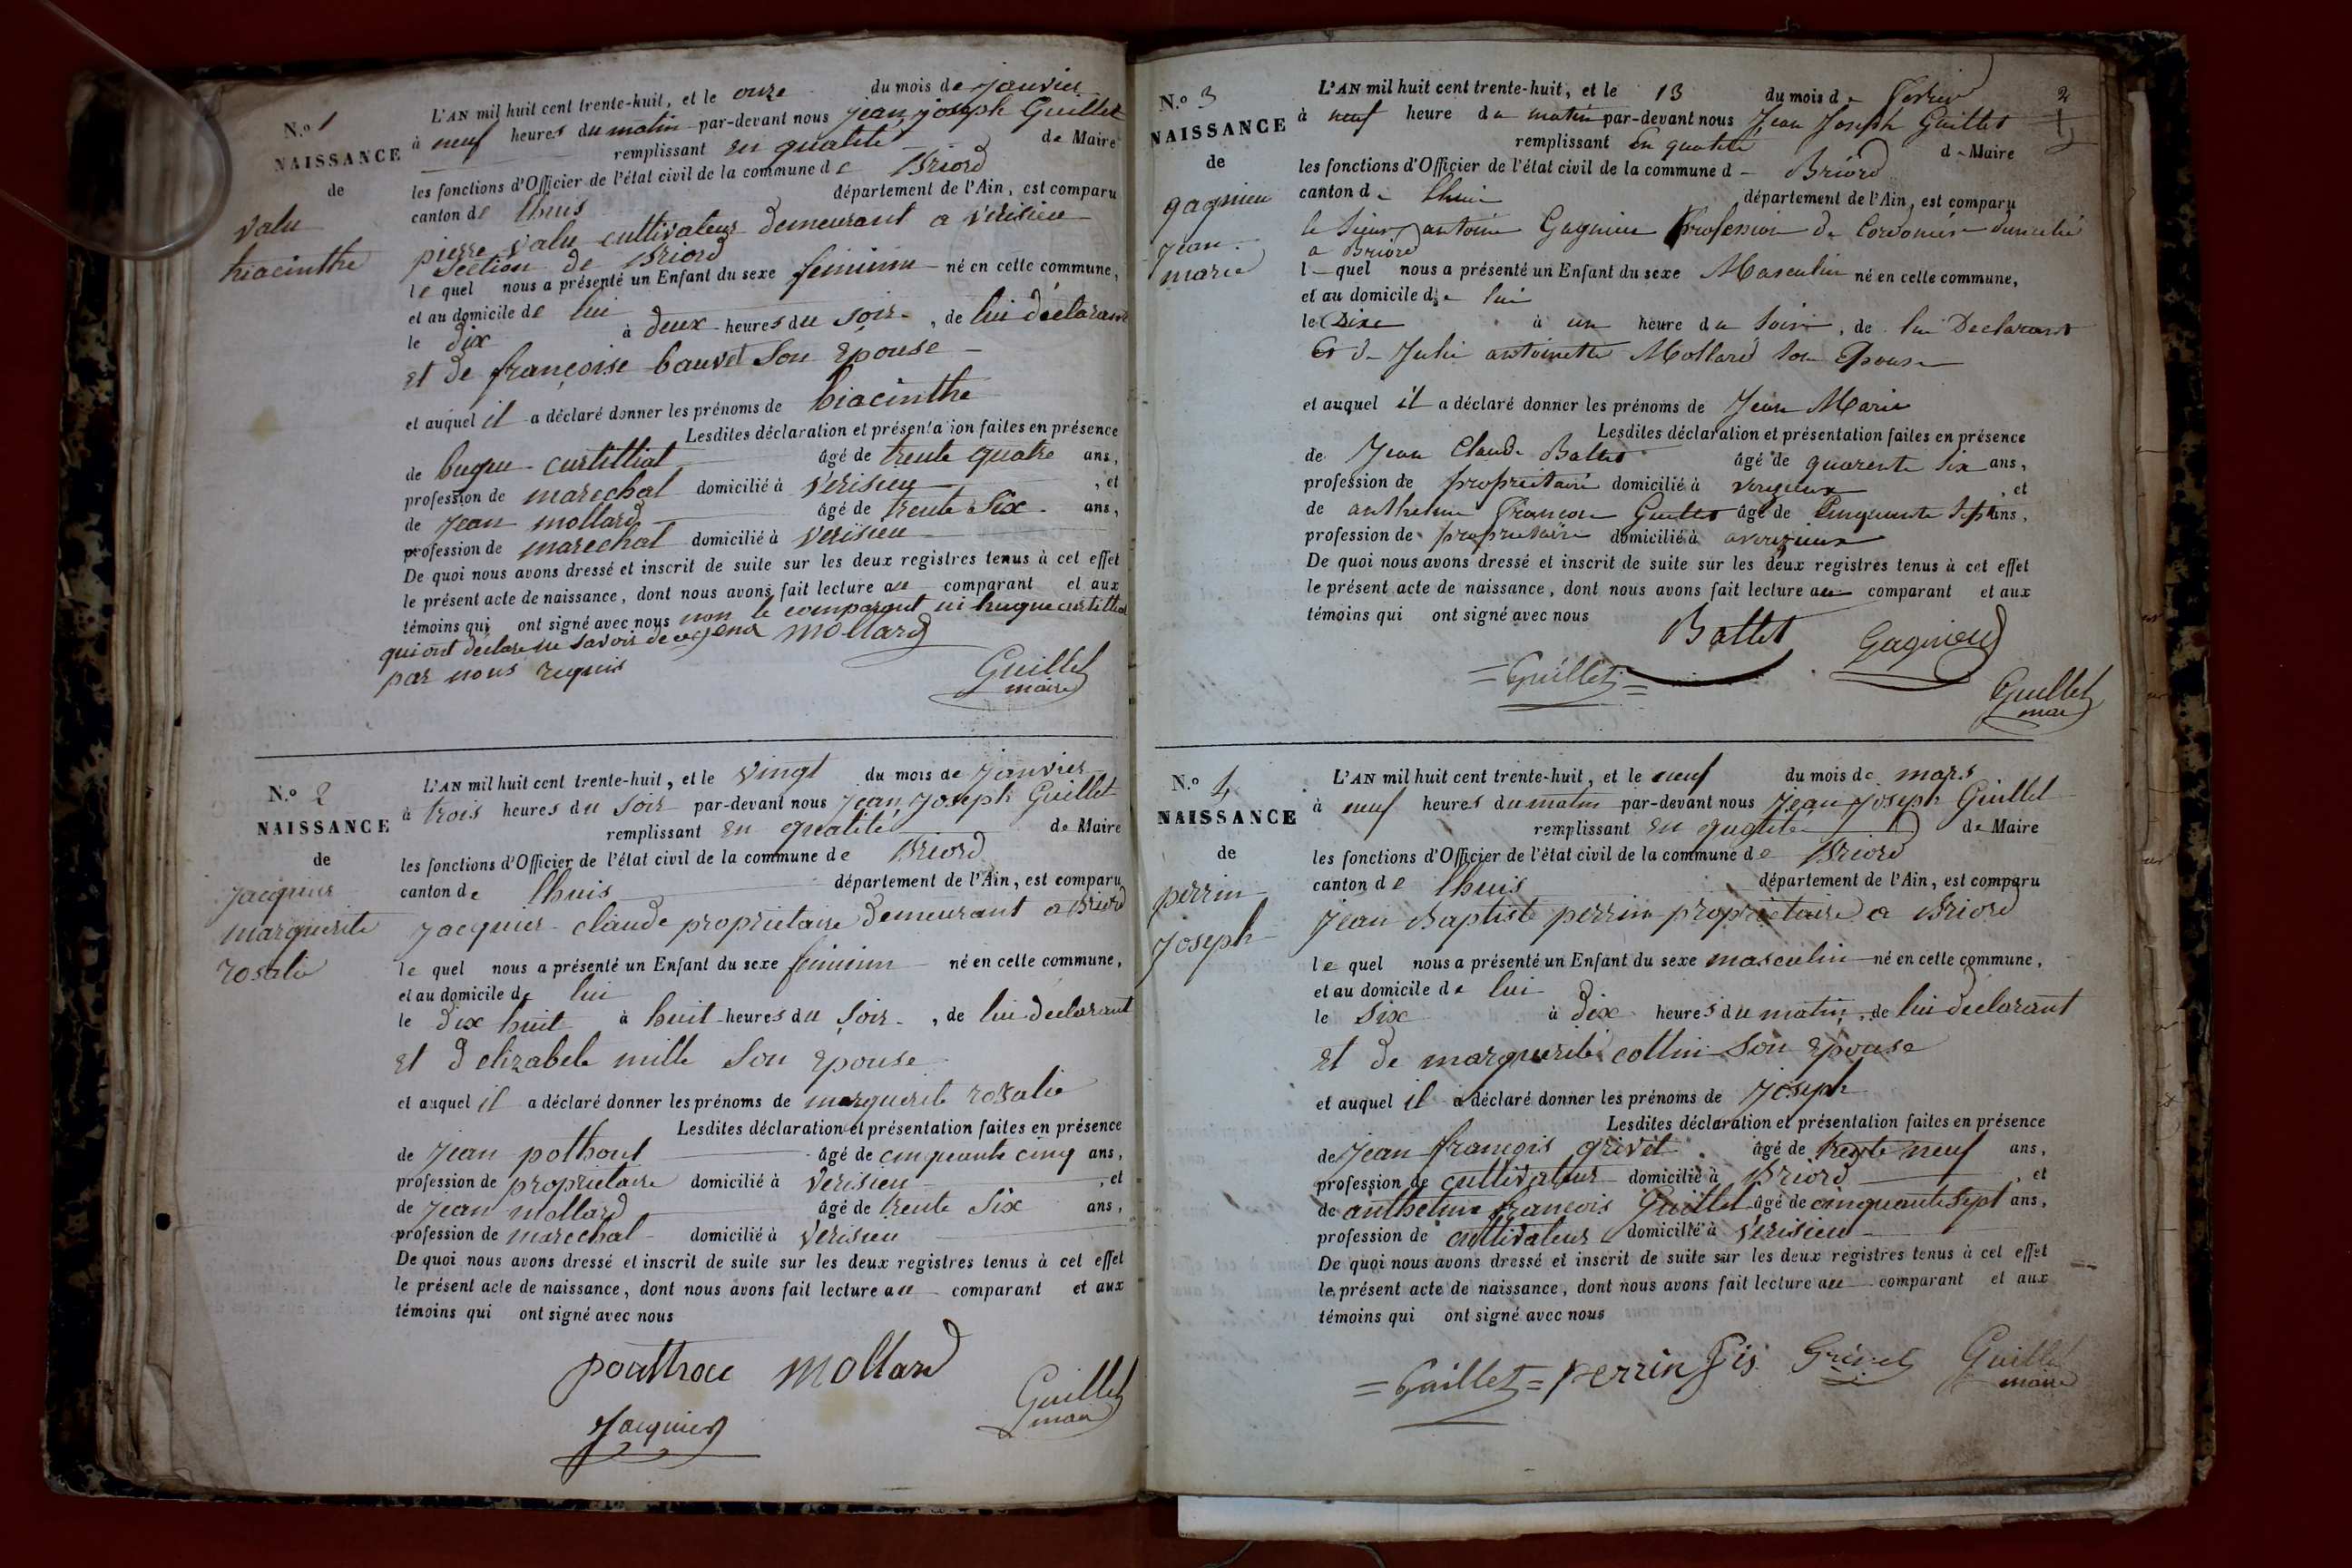 N.o 1
NAISSANCE
de
valu
hiacinthe
L'AN mil huit cent trente-huit, et le onze du mois de janvier
à neuf heures du matin par-devant nous jean joseph Guillet
remplissant en qualité de Maire
les fonctions d'Officier de l'état civil de la commune de Briord
canton de lhuis département de l'Ain, est comparu
pierre valu cultivateur demeurant a verisieu
section de Briord
le quel nous a présenté un Enfant du sexe feminin né en cette commune,
et au domicile de lui
le dix à deux heures du soir, de lui déclarant
et de françoise bauvet son epouse
et auquel il a déclaré donner les prénoms de hiacinthe
Lesdites déclaration et présentation faites en présence
de hugue curtilliat âgé de trente quatre ans,
profession de marechal domicilié à verisieu, et
de jean mollard âgé de trente six ans,
profession de marechal domicilié à verisieu
De quoi nous avons dressé et inscrit de suite sur les deux registres tenus à cet effet
le présent acte de naissance, dont nous avons fait lecture au comparant et aux
témoins qui ont signé avec nous non le comparant ni hugue curtilliat
qui ont déclaré ne savoir de ce mollard
par nous requis
Guillet
maire
N.o 2
NAISSANCE
de
jacquier
marguerite
rosalie
L'AN mil huit cent trente-huit, et le vingt du mois de janvier
à trois heures du soir par-devant nous jean joseph Guillet
remplissant en qualité de Maire
les fonctions d'Officier de l'état civil de la commune de Briord
canton de lhuis département de l'Ain, est comparu
jacquier claude proprietaire demeurant a Briord
le quel nous a présenté un Enfant du sexe feminin né en cette commune,
et au domicile de lui
le dix huit à huit heures du soir, de lui déclarant
et d elizabete mille son epouse
et auquel il a déclaré donner les prénoms de marguerite rosalie
Lesdites déclaration et présentation faites en présence
de jean pothout âgé de cinquante cinq ans,
profession de proprietaire domicilié à verisieu, et
de jean mollard âgé de trente six ans,
profession de marechal domicilié à verisieu
De quoi nous avons dressé et inscrit de suite sur les deux registres tenus à cet effet
le présent acte de naissance, dont nous avons fait lecture au comparant et aux
témoins qui ont signé avec nous
mollard
Guillet
maire
Jacquier
2
N.o 3
NAISSANCE
de
gagnieu
jean
marie
L'AN mil huit cent trente-huit, et le 13 du mois de fevrier
à neuf heure du matin par-devant nous Jean Joseph Guillet
remplissant en qualité de Maire
les fonctions d'Officier de l'état civil de la commune de Briord
canton de lhuis département de l'Ain, est comparu
le sieur antoine Gagnieu profession de Cordonier domicilié
a Briord
le quel nous a présenté un Enfant du sexe Masculin né en cette commune,
et au domicile de lui
le à un heure du soir, de lui Declarant
et de Julie antoinette Mollard son Epouse
et auquel il a déclaré donner les prénoms de Jean Marie
Lesdites déclaration et présentation faites en présence
de Jean Claude Ballet âgé de quarente six ans,
profession de propriétaire domicilié à verizieux, et
de anthelme François Guillet âgé de Cinquante Sept ans,
profession de propriétaire domicilié à averizieux
De quoi nous avons dressé et inscrit de suite sur les deux registres tenus à cet effet
le présent acte de naissance, dont nous avons fait lecture au comparant et aux
témoins qui ont signé avec nous
Ballet Gagnieu
= Guillet =
Guillet
maire
N.o 4
NAISSANCE
de
perrin
joseph
L'AN mil huit cent trente-huit, et le neuf du mois de mars
à neuf heures du matin par-devant nous jean joseph Guillet
remplissant en qualité de Maire
les fonctions d'Officier de l'état civil de la commune de Briord
canton de lhuis département de l'Ain, est comparu
jean Baptiste perrin proprietaire a Briord
le quel nous a présenté un Enfant du sexe masculin né en cette commune,
et au domicile de lui
le six à dix heures du matin, de lui declarant
et de marguerite cottin son epouse
et auquel il a déclaré donner les prénoms de joseph
Lesdites déclaration et présentation faites en présence
de jean françois grivet âgé de trente neuf ans,
profession de cultivateur domicilié à Briord, et
de anthelme françois Guillet âgé de cinquante sept ans,
profession de cultivateur domicilié à verisieu
De quoi nous avons dressé et inscrit de suite sur les deux registres tenus à cet effet
le présent acte de naissance, dont nous avons fait lecture au comparant et aux
témoins qui ont signé avec nous
= Guillet = perrin fis Grivet Guillet
maire